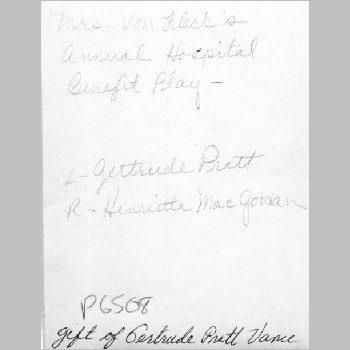 Mrs. Von Fleck's
Annual Hospital
Benefit Play -
L - Gertrude Pratt
R - Henrietta MacGowan
P6508
gift of Gertrude Pratt Vance